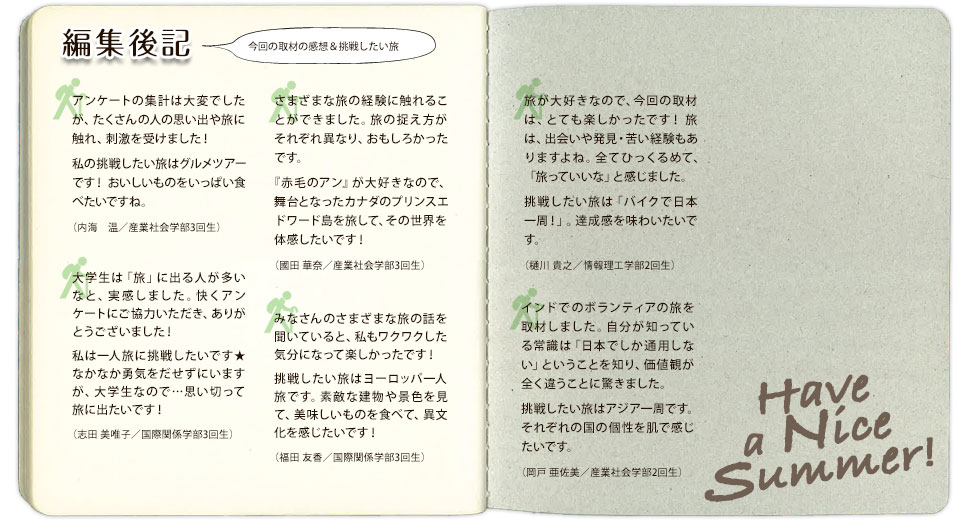 編集後記
今回の取材の感想＆挑戦したい旅
アンケートの集計は大変でした
が、たくさんの人の思い出や旅に
触れ、刺激を受けました！
私の挑戦したい旅はグルメツアー
です！ おいしいものをいっぱい食
べたいですね。
（内海　温／産業社会学部3回生）
大学生は「旅」に出る人が多い
なと、実感しました。快くアン
ケートにご協力いただき、ありが
とうございました！
私は一人旅に挑戦したいです★
なかなか勇気をだせずにいます
が、大学生なので…思い切って
旅に出たいです！
（志田 美唯子／国際関係学部3回生）
さまざまな旅の経験に触れるこ
とができました。旅の捉え方が
それぞれ異なり、おもしろかった
です。
『赤毛のアン』が大好きなので、
舞台となったカナダのプリンスエ
ドワード島を旅して、その世界を
体感したいです！
（國田 華奈／産業社会学部3回生）
みなさんのさまざまな旅の話を
聞いていると、私もワクワクした
気分になって楽しかったです！
挑戦したい旅はヨーロッパ一人
旅です。素敵な建物や景色を見
て、美味しいものを食べて、異文
化を感じたいです！
（福田 友香／国際関係学部3回生）
旅が大好きなので、今回の取材
は、とても楽しかったです！ 旅
は、出会いや発見・苦い経験もあ
りますよね。全てひっくるめて、
「旅っていいな」と感じました。
挑戦したい旅は「バイクで日本
一周！」。達成感を味わいたいで
す。
（樋川 貴之／情報理工学部2回生）
インドでのボランティアの旅を
取材しました。自分が知ってい
る常識は「日本でしか通用しな
い」ということを知り、価値観が
全く違うことに驚きました。
挑戦したい旅はアジア一周です。
それぞれの国の個性を肌で感じ
たいです。
（岡戸 亜佐美／産業社会学部2回生）
Have
a Nice
Summer!